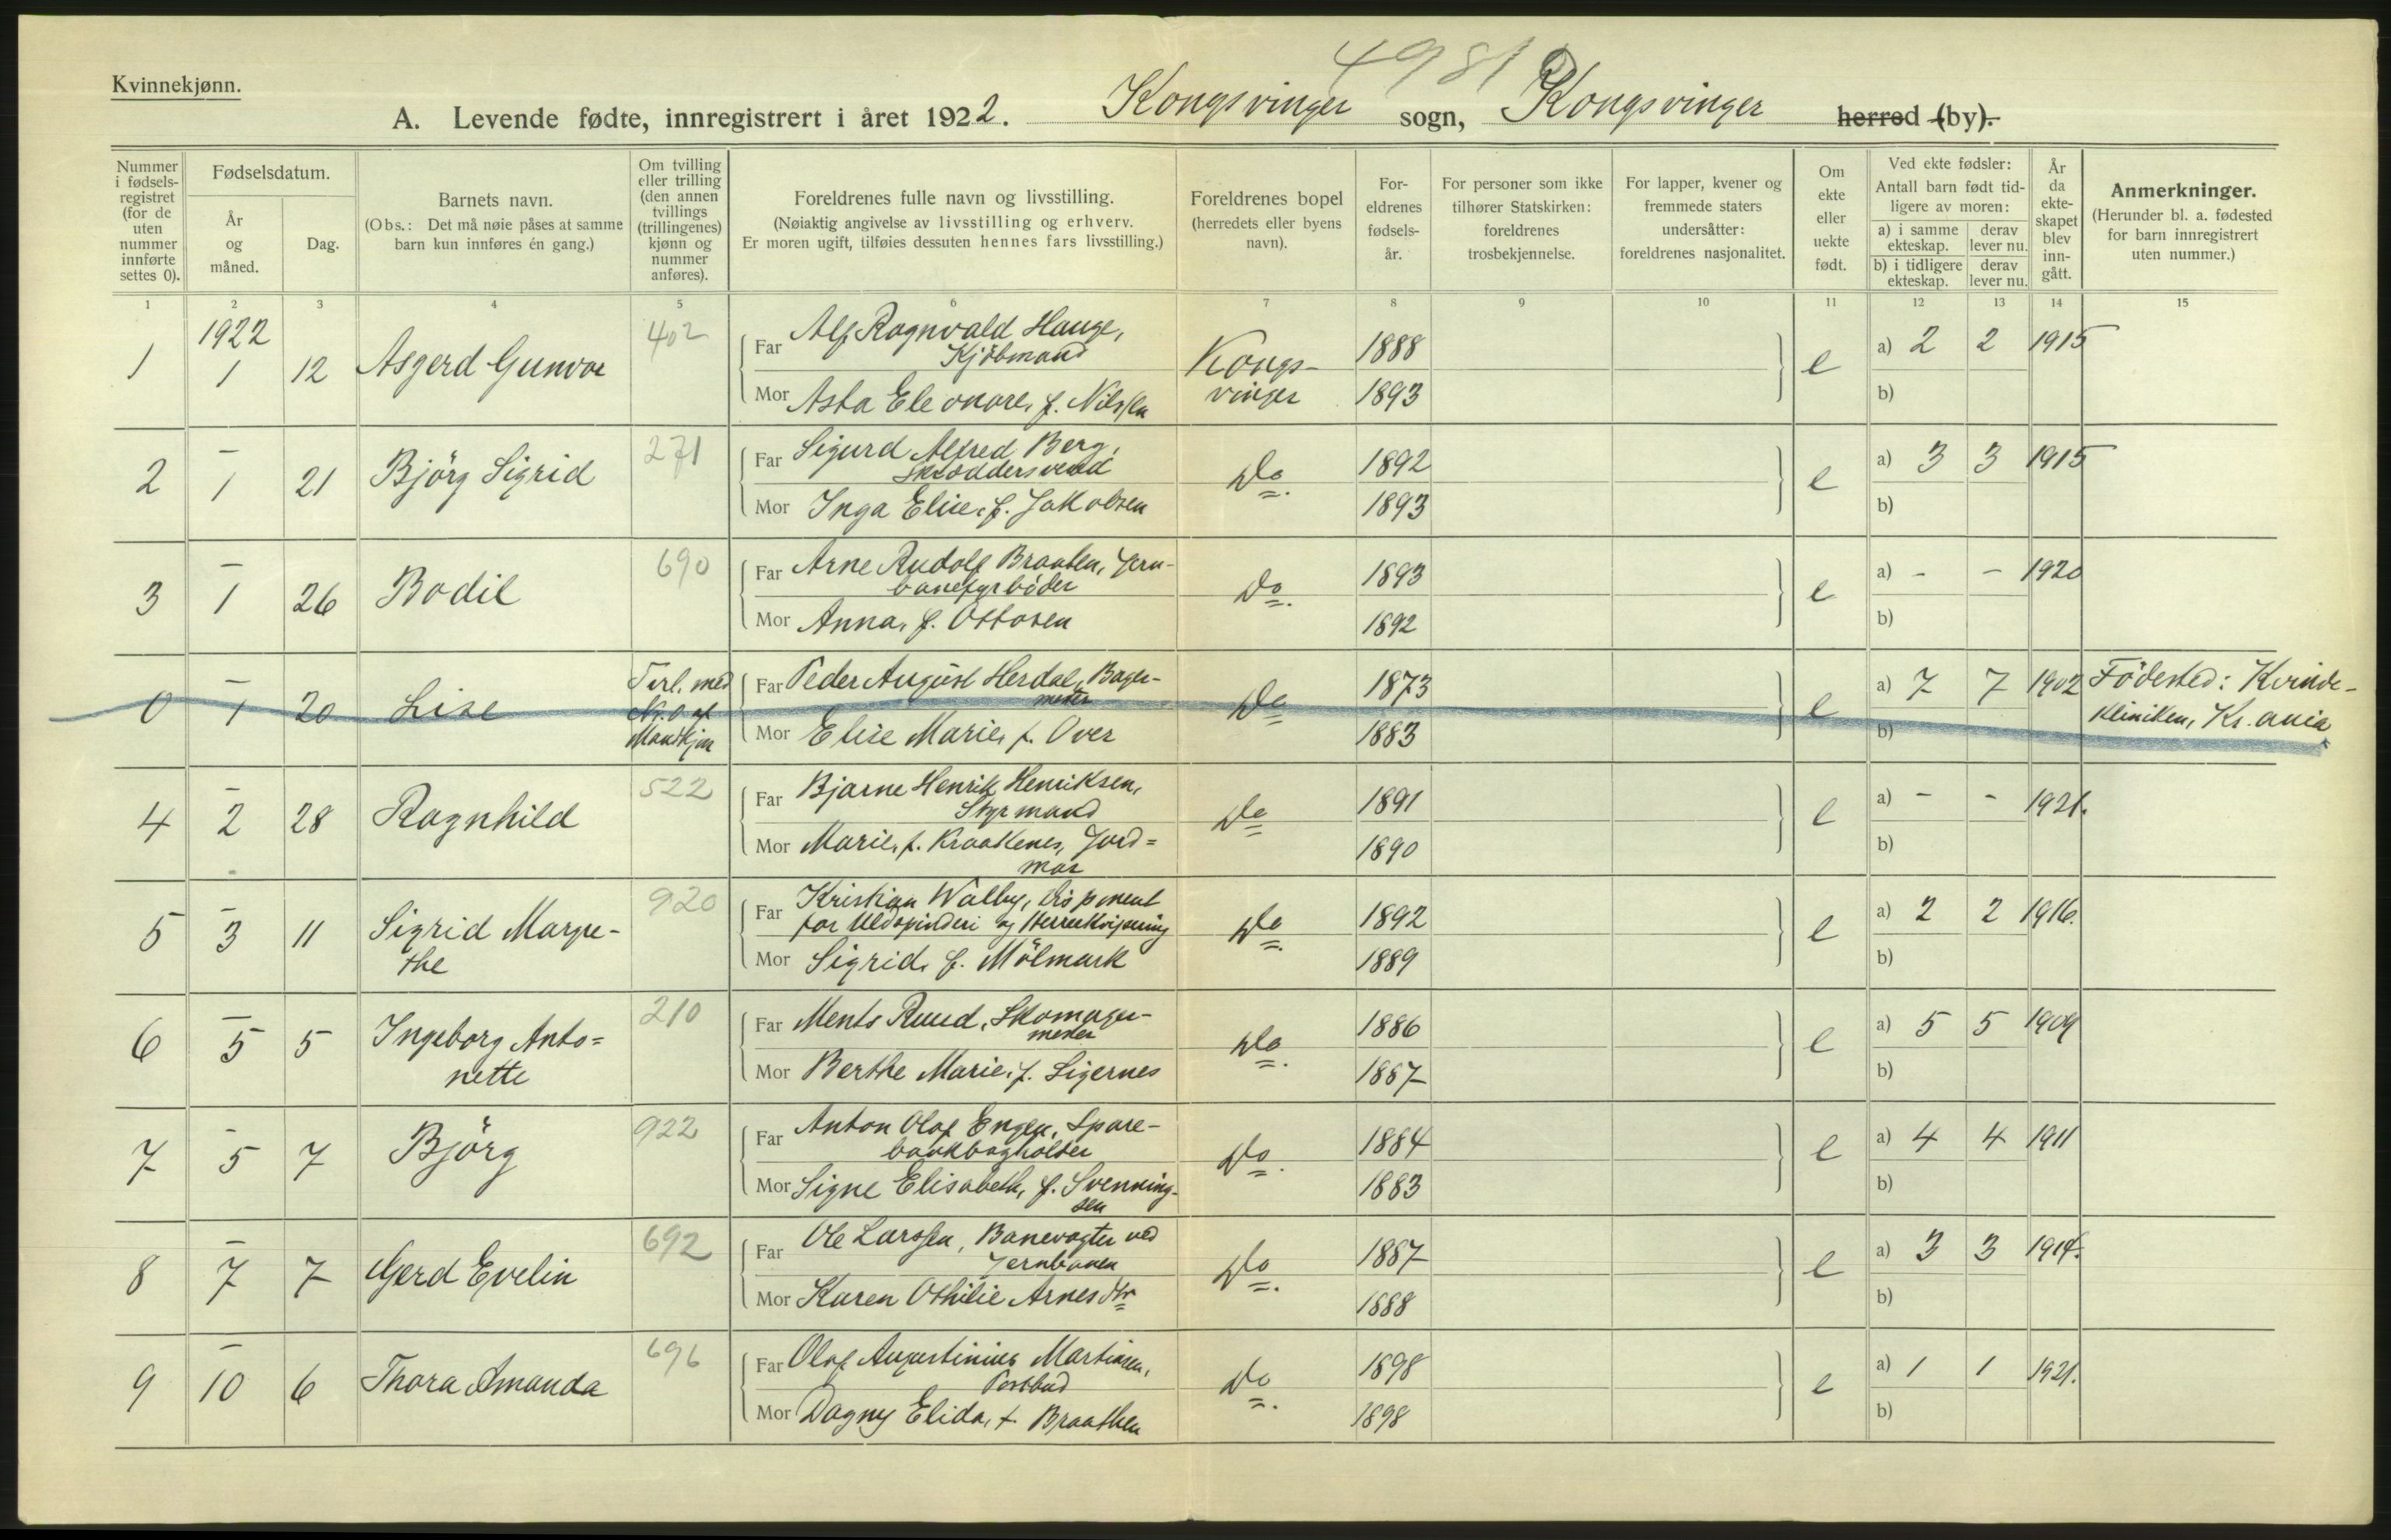 4981
Kvinnekjønn.
A. Levende fødte, innregistrert i året 1922. Kongsvinger sogn, Kongsvinger herred (by).
Nummer i fødsels-registret (for de uten nummer innførte settes 0).
Fødselsdatum.
År og måned.
Dag.
Barnets navn.
(Obs.: Det må nøie påses at samme barn kun innføres én gang.)
Om tvilling eller trilling (den annen tvillings (trillingenes) kjønn og nummer anføres).
Foreldrenes fulle navn og livsstilling.
(Nøiaktig angivelse av livsstilling og erhverv.
Er moren ugift, tilføies dessuten hennes fars livsstilling.)
Foreldrenes bopel
(herredets eller byens navn).
For-eldrenes fødsels-år.
For personer som ikke tilhører Statskirken: foreldrenes trosbekjennelse.
For lapper, kvener og fremmede staters undersåtter: foreldrenes nasjonalitet.
Om ekte eller uekte født.
Ved ekte fødsler:
Antall barn født tid-ligere av moren:
a) i samme ekteskap.
derav lever nu.
b) i tidligere ekteskap.
derav lever nu.
År da ekte-skapet blev inn-gått.
Anmerkninger.
(Herunder bl. a. fødested for barn innregistrert uten nummer.)
1 2 3 4 5 6 7 8 9 10 11 12 13 14 15
1 1922 1 12 Asgerd Gunvor 402
Far Alf Ragnvald Hauge,
Kjöbmand
Mor Asta Eleonore, f. Nilssen
Kongs-
vinger
1888
1893
e a) 2 2 1915
b)
2 – 1 21 Björg Sigrid 271
Far Sigurd Alfred Berg,
Skræddersvend
Mor Inga Elise, f. Jakobsen
Do. 1892
1893
e a) 3 3 1915
b)
3 – 1 26 Bodil 690
Far Arne Rudolf Braaten, Jern-
banefyrböder
Mor Anna, f. Ottosen
Do. 1893
1892
e a) - - 1920
b)
0 – 1 20 Lise
Tvil. med
No. 0 af
Mandkjøn
Far Peder August Herdal, Bager-
mester
Mor Elise Marie, f. Over
Do 1873
1883
e a) 7 7 1902
b)
Födested: Kvinde-
kliniken, Kr.ania
4 – 2 28 Ragnhild 522
Far Bjarne Henrik Henriksen,
Styrmand
Mor Marie, f. Kraakenes, Jord=
mor
Do 1891
1890
e a) - - 1921.
b)
5 – 3 11 Sigrid Margre-
the 920
Far Kristian Walby, Disponent
for Uldspinderi og Herreekvipering
Mor Sigrid, f. Mölmark
Do. 1892
1889
e a) 2 2 1916.
b)
6 – 5 5 Ingeborg Anto=
nette 210
Far Ments Ruud, Skomager-
mester
Mor Berthe Marie, f. Sigernes
Do. 1886
1887
e a) 5 5 1909
b)
7 – 5 7 Björg 922
Far Anton Olaf Engen, Spare-
bankbogholder
Mor Signe Elisabeth, f. Svenning-
sen
Do. 1884
1883
e a) 4 4 1911
b)
8 – 7 7 Gerd Evelin 692
Far Ole Larssen, Banevogter ved
Jernbanen
Mor Karen Othilie Arnesdtr
Do. 1887
1888
e a) 3 3 1914.
b)
9 – 10 6 Thora Amanda 696
Far Olaf Augustinius Martinsen,
Postbud
Mor Dagny Elida, f. Braathen
Do. 1898
1898
e a) 1 1 1921.
b)